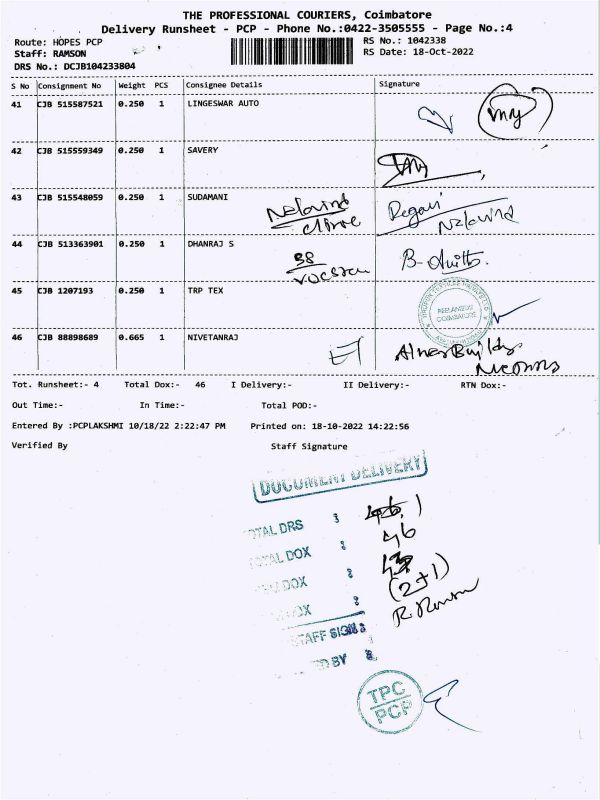 THE PROFESSIONAL COURIERS, Coimbatore
Delivery Runsheet - PCP - Phone No.:0422-3505555 - Page No.:4
Route: HOPES PCP RS No.: 1042338
Staff: RAMSON RS Date: 18-Oct-2022
DRS No.: DCJB104233804
S No Consignment No Weight PCS Consignee Details Signature
41 CJB 515587521 0.250 1 LINGESWAR AUTO
42 CJB 515559349 0.250 1 SAVERY
43 CJB 515548059 0.250 1 SUDAMANI
44 CJB 513363901 0.250 1 DHANRAJ S
45 CJB 1207193 0.250 1 TRP TEX
46 CJB 88898689 0.665 1 NIVETANRAJ
Tot. Runsheet:- 4 Total Dox:- 46 I Delivery:- II Delivery:- RTN Dox:-
Out Time:- In Time:- Total POD:-
Entered By :PCPLAKSHMI 10/18/22 2:22:47 PM Printed on: 18-10-2022 14:22:56
Verified By Staff Signature
DOCUMENT DELIVERY
TOTAL DRS :
TOTAL DOX : 46
DOX :
DOX : (2+1)
STAFF SIGN : R. Ramson
BY :
TPC
PCP